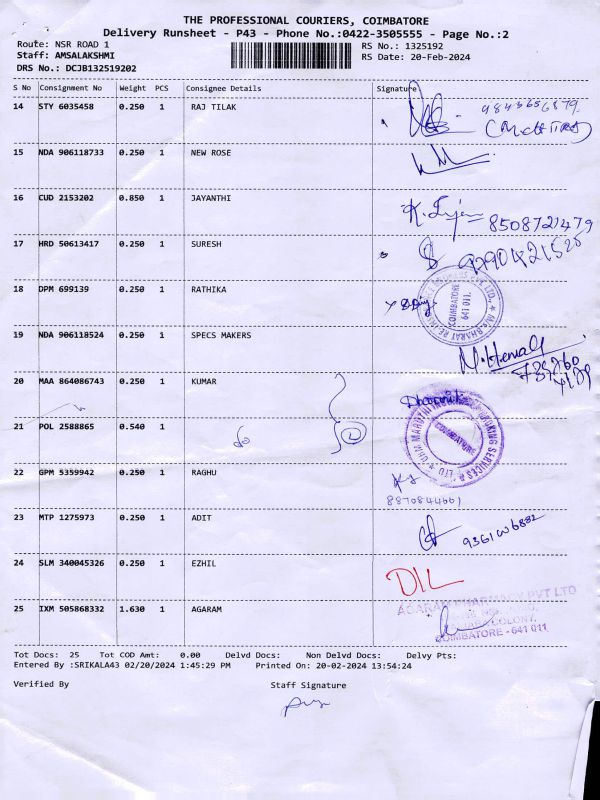 THE PROFESSIONAL COURIERS, COIMBATORE
Delivery Runsheet - P43 - Phone No.:0422-3505555 - Page No.:2
Route: NSR ROAD 1
RS No.: 1325192
Staff: AMSALAKSHMI
RS Date: 20-Feb-2024
DRS No.: DCJB132519202
S No Consignment No Weight PCS Consignee Details Signature
14 STY 6035458 0.250 1 RAJ TILAK
15 NDA 906118733 0.250 1 NEW ROSE
16 CUD 2153202 0.850 1 JAYANTHI
8508721479
17 HRD 50613417 0.250 1 SURESH
18 DPM 699139 0.250 1 RATHIKA
COIMBATORE
641 011.
19 NDA 906118524 0.250 1 SPECS MAKERS
20 MAA 864086743 0.250 1 KUMAR
21 POL 2588865 0.540 1
COIMBATORE
22 GPM 5359942 0.250 1 RAGHU
8870844661
23 MTP 1275973 0.250 1 ADIT
24 SLM 340045326 0.250 1 EZHIL
DIL
25 IXM 505868332 1.630 1 AGARAM
AGARAM PHARMACY PVT LTD
COIMBATORE - 641 011.
Tot Docs: 25 Tot COD Amt: 0.00 Delvd Docs: Non Delvd Docs: Delvy Pts:
Entered By :SRIKALA43 02/20/2024 1:45:29 PM Printed On: 20-02-2024 13:54:24
Verified By Staff Signature